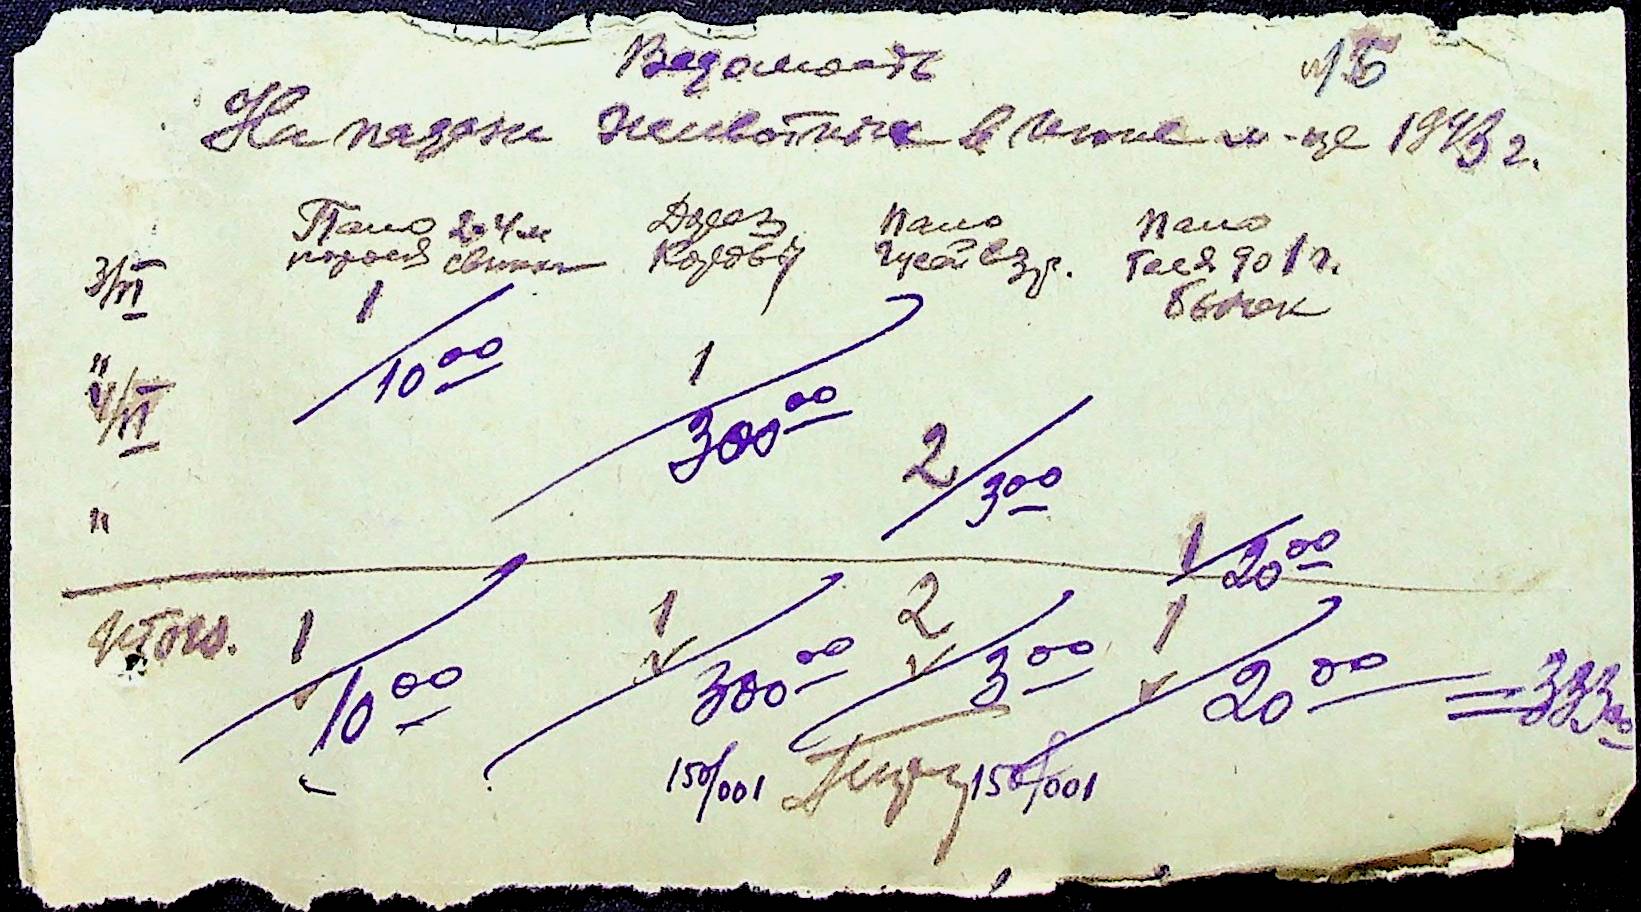 Ведомость
На падеж животных в июне м-це 1943 г.
Пало 2-4 м Дорез Пало Пало
порося свинки Коровы гусей взр. теля до 1 г.
бычек
3/VI 1/10 00
" 1/300 00
4/VI 2/3 00
" 1/20 00
Итого. 1/10 00 1/300 00 2/3 00 1/20 00 = 333 00
150/001 150/001